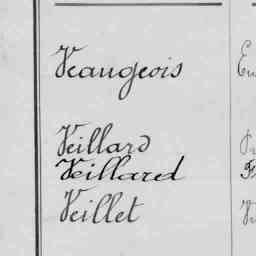 Veaugeois
Veillard
Veillared
Veillet